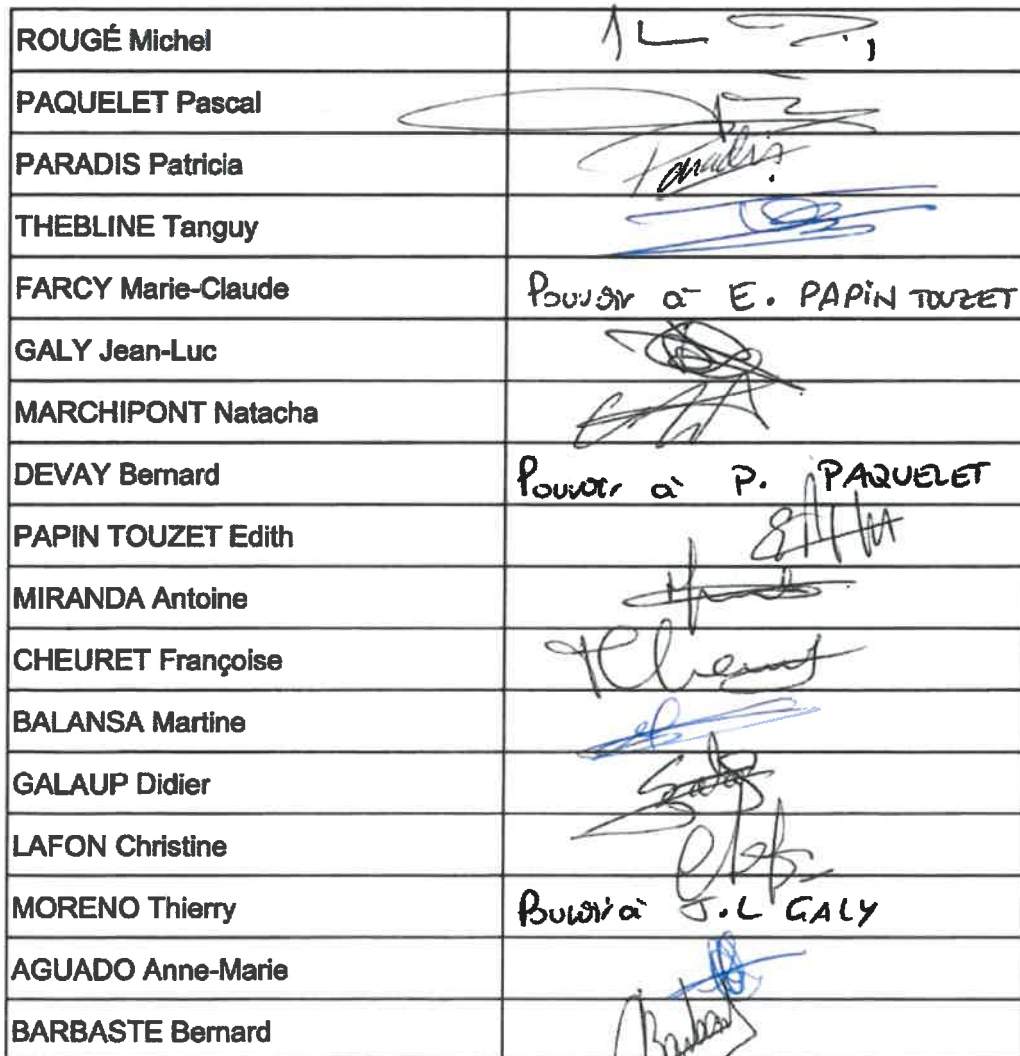 ROUGÉ Michel
PAQUELET Pascal
PARADIS Patricia Paradis
THEBLINE Tanguy
FARCY Marie-Claude Pouvoir à E. PAPIN TOUZET
GALY Jean-Luc
MARCHIPONT Natacha
DEVAY Bernard Pouvoir à P. PAQUELET
PAPIN TOUZET Edith
MIRANDA Antoine
CHEURET Françoise
BALANSA Martine
GALAUP Didier
LAFON Christine
MORENO Thierry Pouvoir à J.L GALY
AGUADO Anne-Marie
BARBASTE Bernard